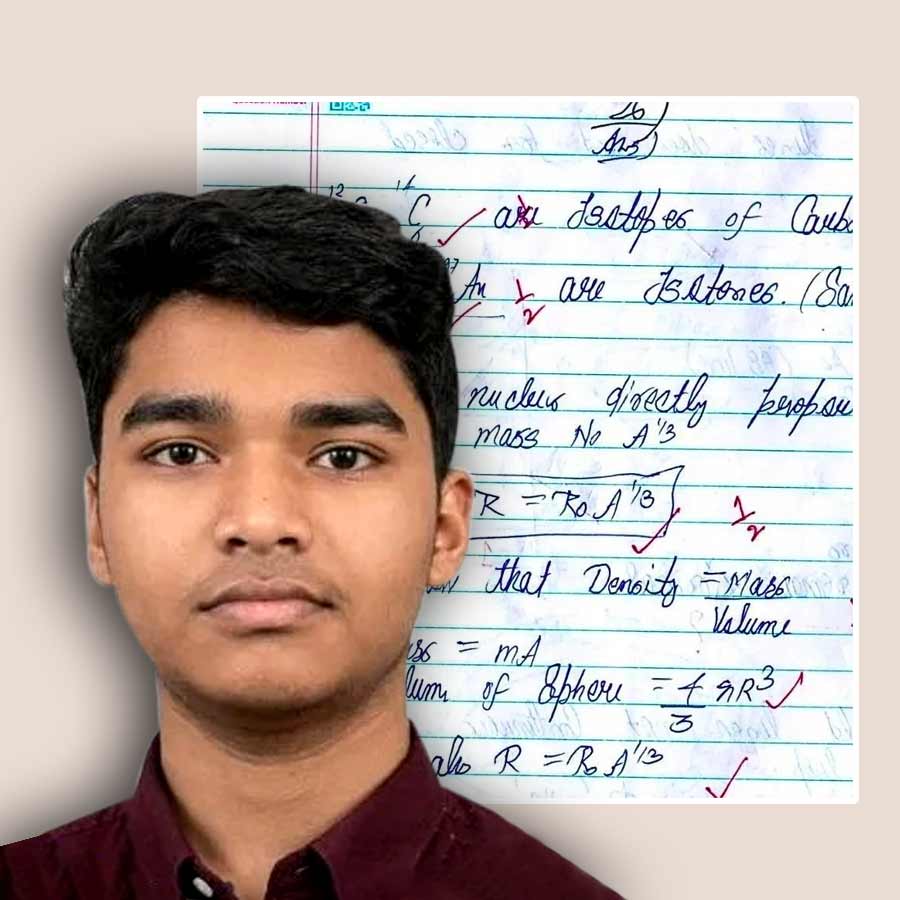 26
Ans
12 14
C C are Isotopes of Carb
97
Au 1/2 are Isotones. (Sa
nucleus directly propor
mass No A^1/3
R = R₀ A^1/3 1/2
that Density = Mass
Volume
= mA
lum of Sphere = 4 πR³
3
also R = R₀ A^1/3